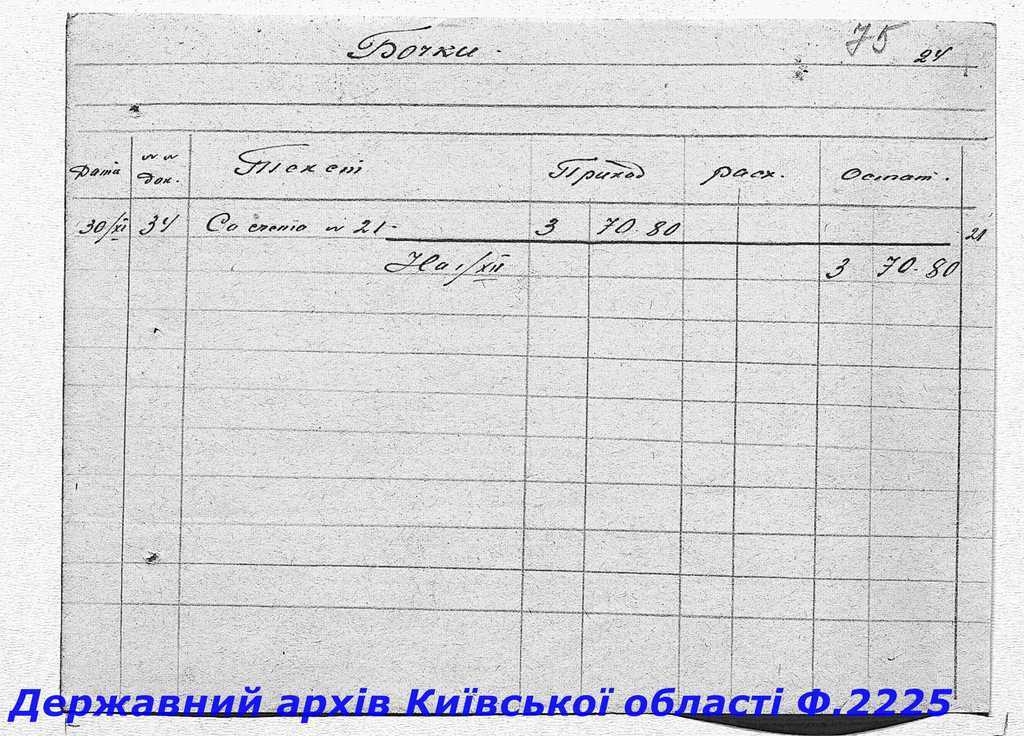 Бочки.
75 24
Дата №№ док. Текст Приход расх. Остат.
30/XI 34 Со счета № 21- 3 70.80 21
На 1/XII 3 70.80
Державний архів Київської області Ф.2225